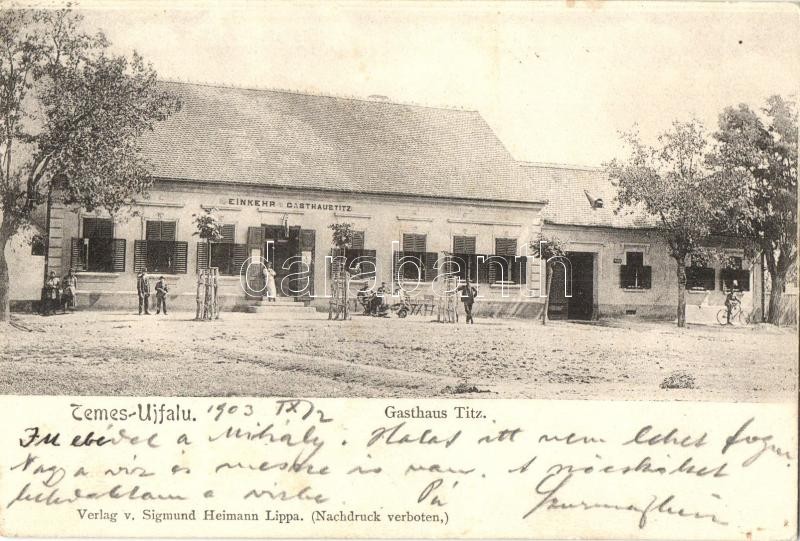 EINKEHR GASTHAUS TITZ
darabanth
Temes-Ujfalu. 1903 IX/2
Gasthaus Titz.
Itt ebédel a Mihály. Halat itt nem lehet fogni
Nagy a víz és messze is van. A
a vízbe. Pá
Verlag v. Sigmund Heimann Lippa. (Nachdruck verboten,)